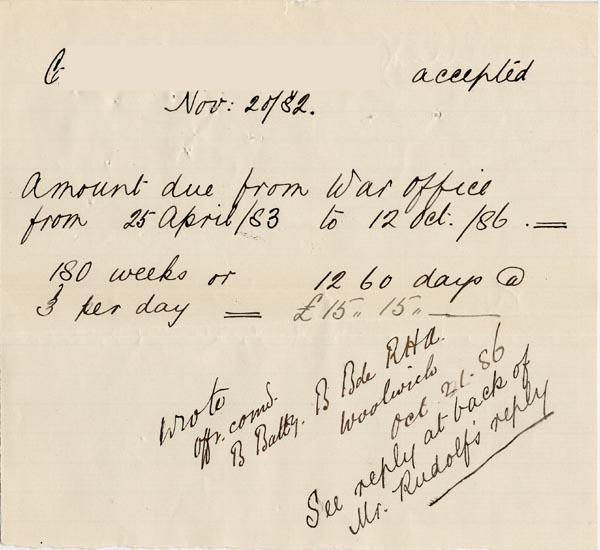 C accepted
Nov: 20/82.
Amount due from War Office
from 25 April/83 to 12 Oct. /86. =
180 weeks or 1260 days @
3 per day = £15 " 15 " —
Wrote
Offr. comd.
B Batty. B Bde RHA.
Woolwich
Oct. 21. 86
See reply at back of
Mr. Rudolf's reply